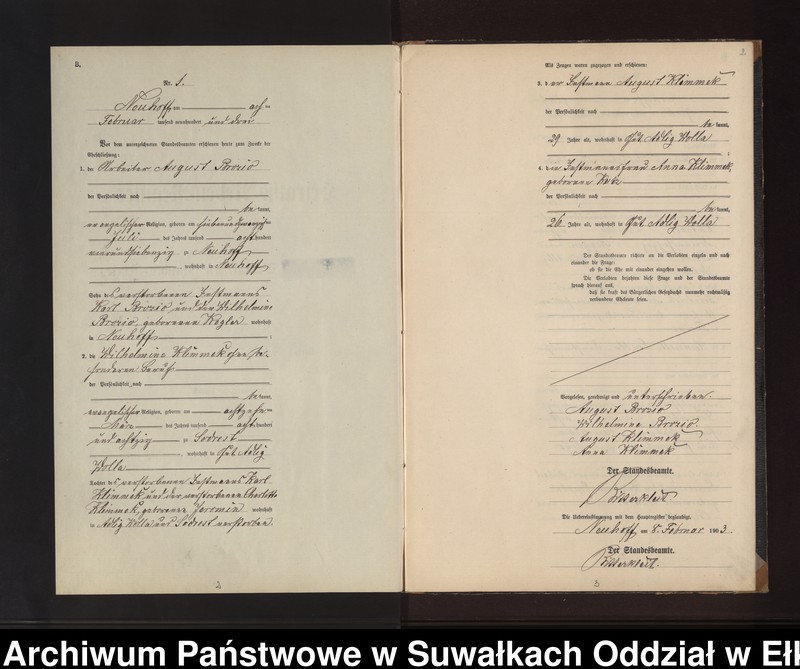 B.
Nr. 1.
Neuhoff am acht ten
Februar tausend neunhundert und drei
Vor dem unterzeichneten Standesbeamten erschienen heute zum Zwecke der
Eheschließung:
1. der Arbeiter August Brosio
der Persönlichkeit nach
be kannt,
evangelischer Religion, geboren am siebenundzwanzigsten
Juli des Jahres tausend acht hundert
vierundsiebenzig zu Neuhoff
, wohnhaft in Neuhoff
Sohn des verstorbenen Instmanns
Karl Brosio und der Wilhelmine
Brosio, geborenen Kogler wohnhaft
in Neuhoff ;
2. die Wilhelmine Klimmek ohne be-
sonderen Beruf
der Persönlichkeit nach
be kannt,
evangelischer Religion, geboren am achtzehn ten
März des Jahres tausend acht hundert
und achtzig zu Sodrest
, wohnhaft in Gut Adlig
Wolla
Tochter des verstorbenen Instmanns Karl
Klimmek und der verstorbenen Charlotte
Klimmek, geborenen Jeromin wohnhaft
in Adlig Wolla und Sodrest verstorben
2
2
Als Zeugen waren zugezogen und erschienen:
3. der Instmann August Klimmek
der Persönlichkeit nach
be kannt,
29 Jahre alt, wohnhaft in Gut Adlig Wolla
;
4. die Instmannsfrau Anna Klimmek,
geborene
der Persönlichkeit nach
be kannt,
26 Jahre alt, wohnhaft in Gut Adlig Wolla
Der Standesbeamte richtete an die Verlobten einzeln und nach
einander die Frage:
ob sie die Ehe mit einander eingehen wollen.
Die Verlobten bejahten diese Frage und der Standesbeamte
sprach hierauf aus,
daß sie kraft des Bürgerlichen Gesetzbuchs nunmehr rechtmäßig
verbundene Eheleute seien.
Vorgelesen, genehmigt und unterschrieben.
August Brosio
Wilhelmine Brosio
August Klimmek
Anna Klimmek
Der Standesbeamte.
Die Uebereinstimmung mit dem Hauptregister beglaubigt.
Neuhoff am 8. Februar 1903.
Der Standesbeamte.
3
Archiwum Państwowe w Suwałkach Oddział w Eł